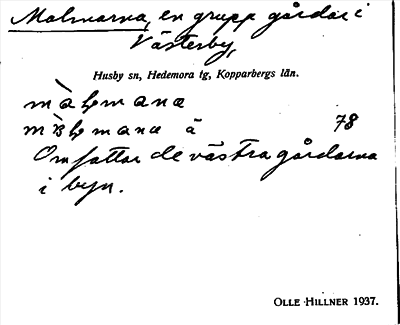 Malmarna, en grupp gårdar i
Västerby,
Husby sn, Hedemora tg, Kopparbergs län.
ä 78
Omfattar de västra gårdarna
i byn.
OLLE HILLNER 1937.